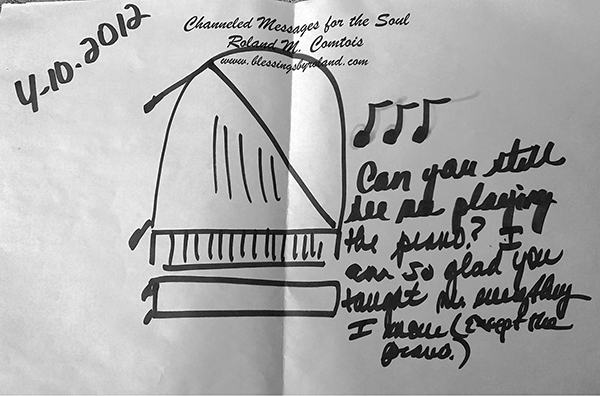 Channeled Messages for the Soul
Roland M. Comtois
www.blessingsbyroland.com
4-10-2012
Can you still
see me playing
the piano? I
am so glad you
taught me everything
I know (except the
piano.)